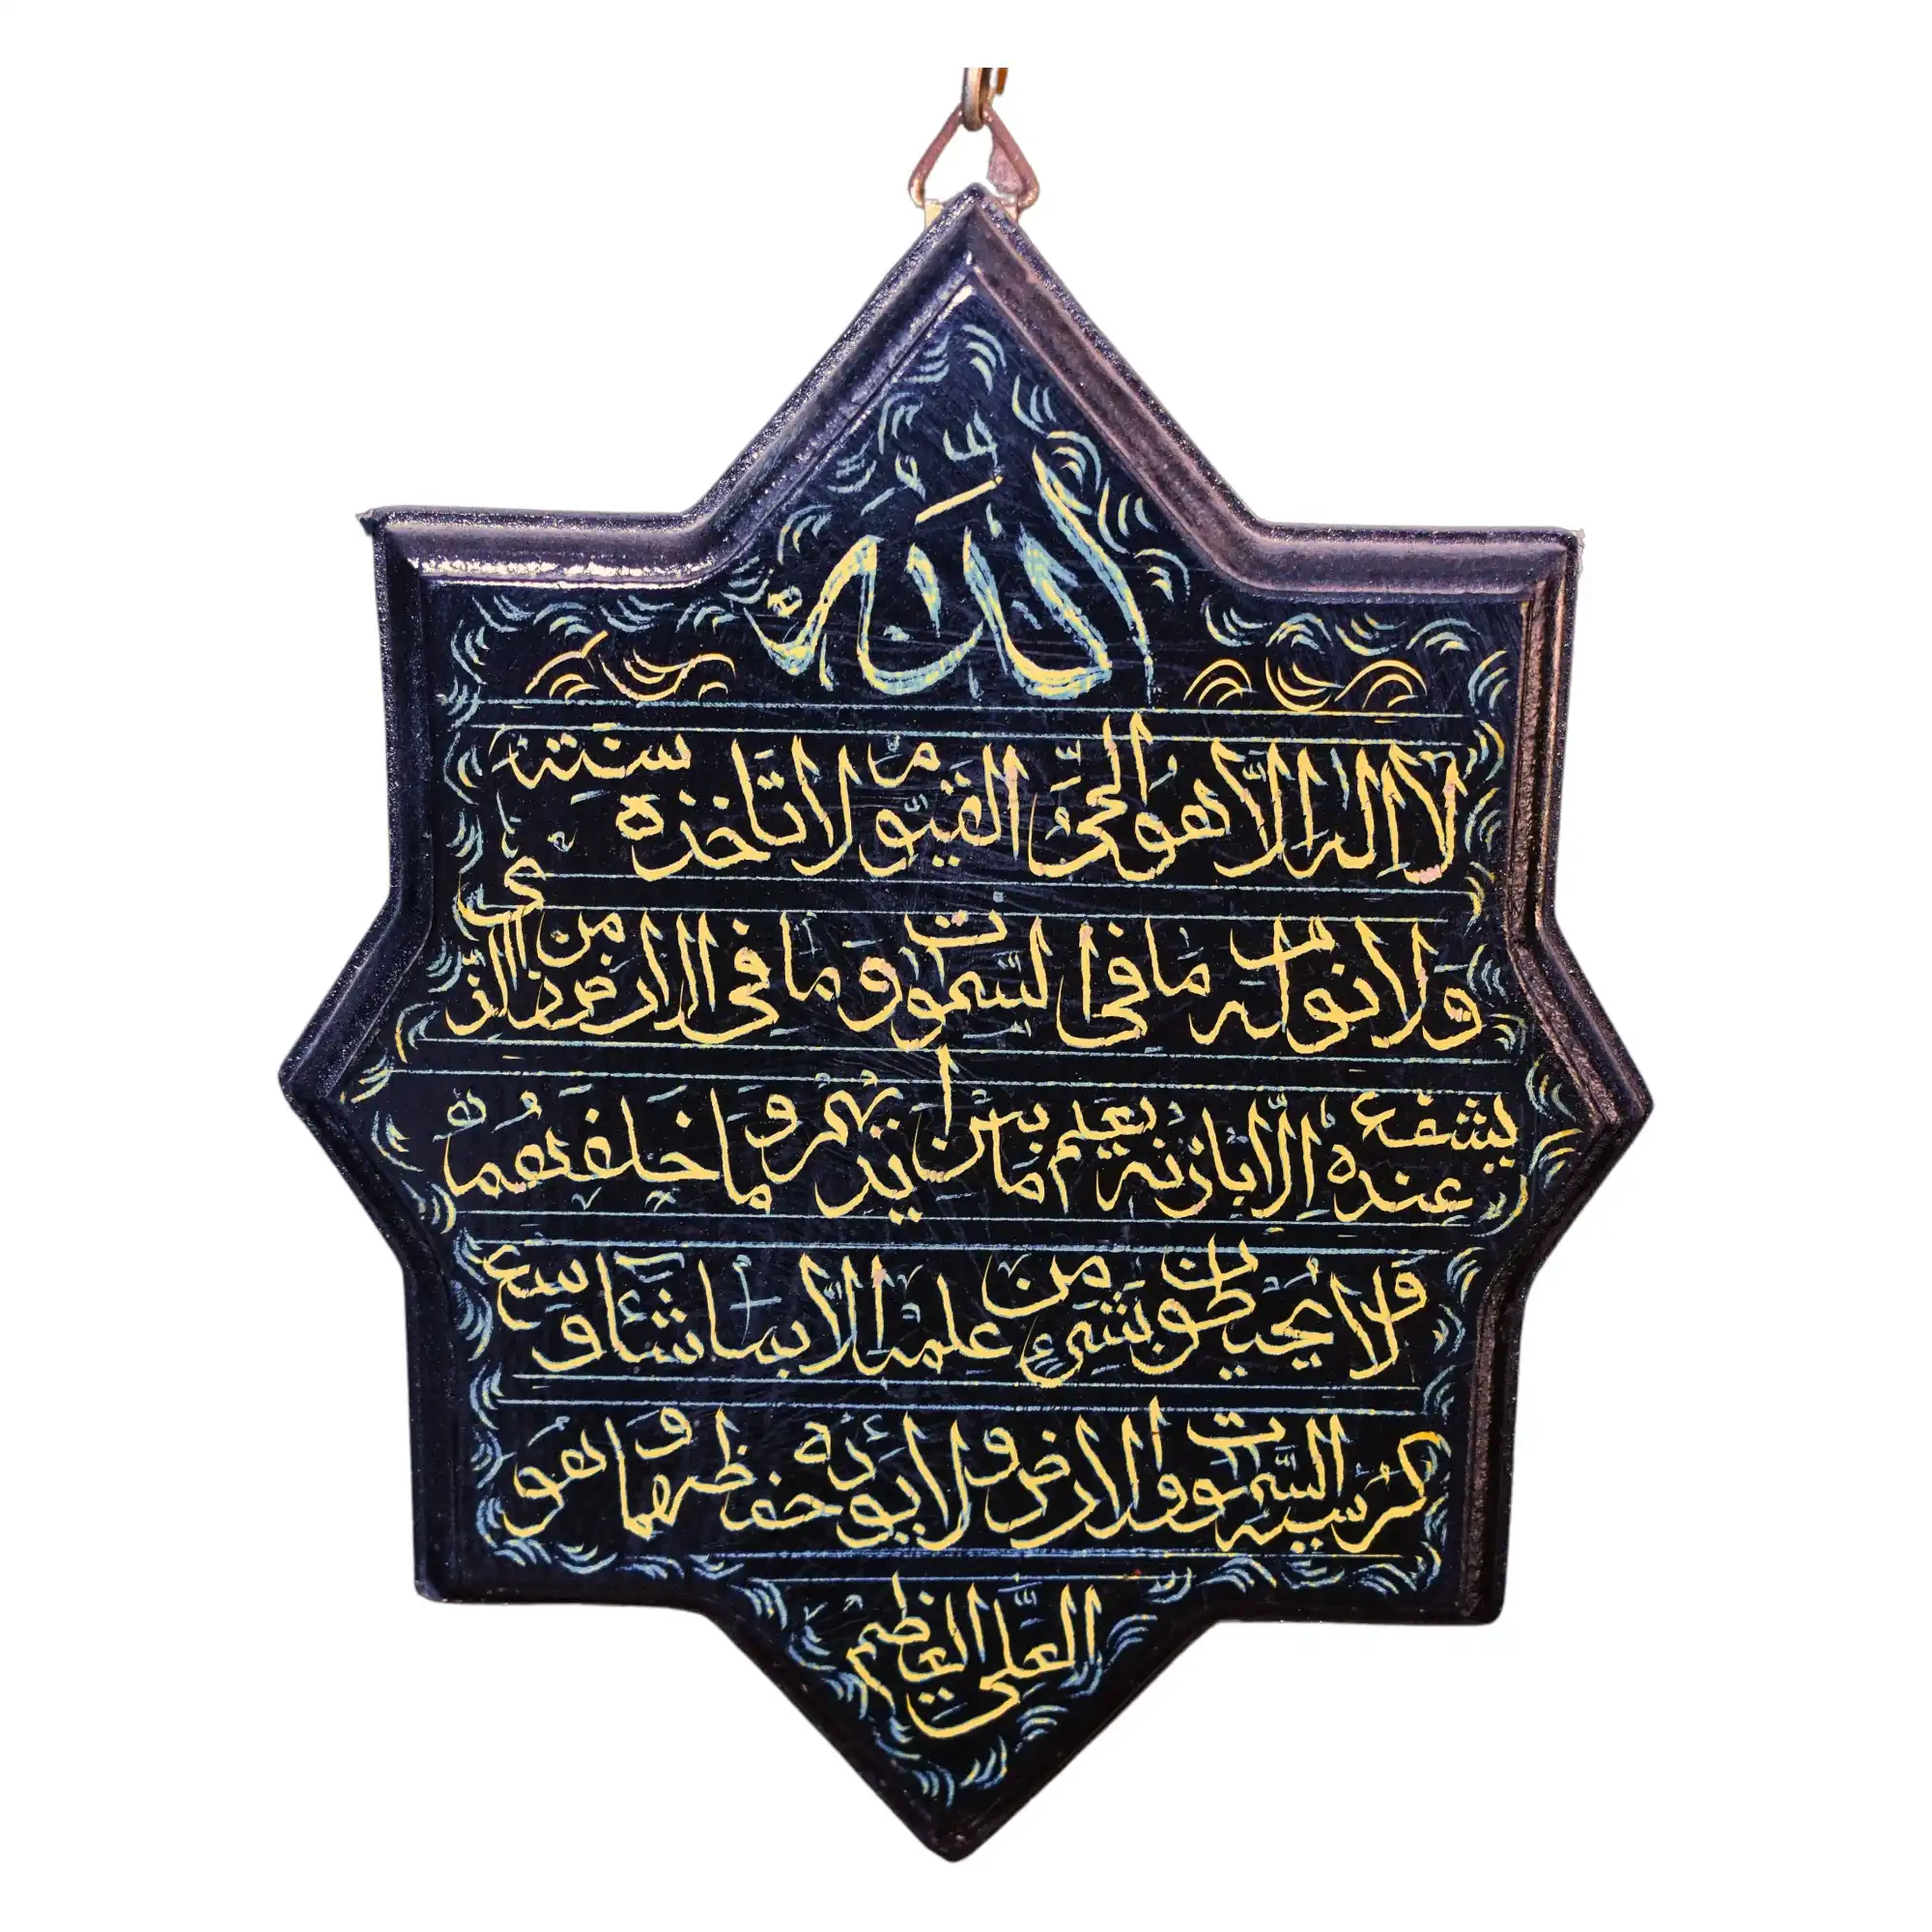 الله
لا اله الا هو الحي القيوم لا تاخذه سنته
ولا نوم له ما في السموت وما في الارض من ذالذي
يشفع عنده الا باذنه يعلم ما بين ايديهم وما خلفهم
ولا يحيطون بشيء من علمه الا بما شاء وسع
كرسيه السموت والارض ولا يوده حفظهما وهو
العلي العظيم